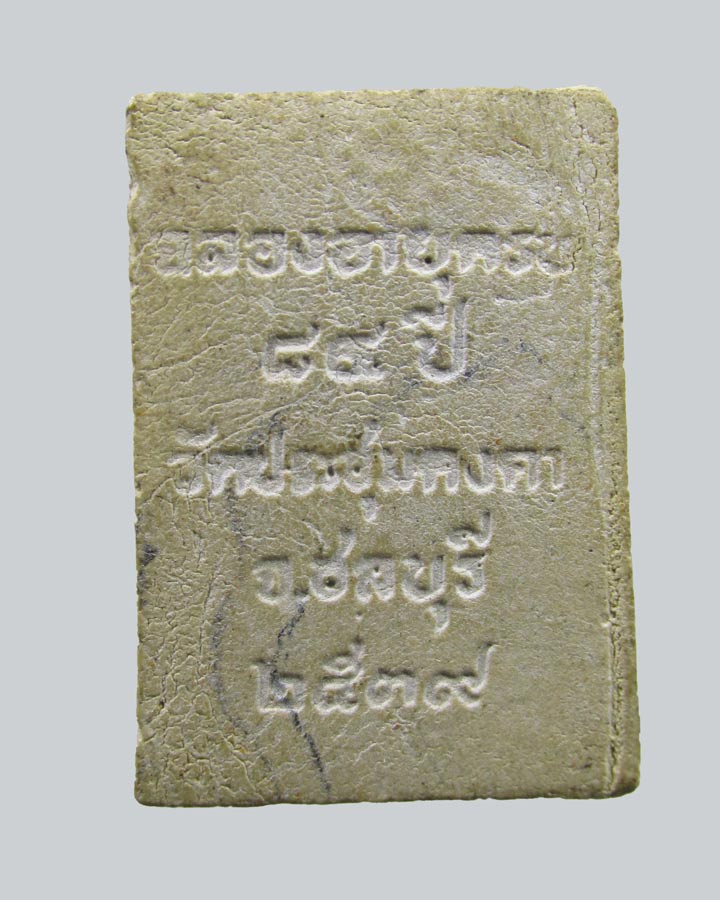 ฉลองอายุครบ
๘๔ ปี
วัดประชุมคงคา
จ.ชลบุรี
๒๕๓๙